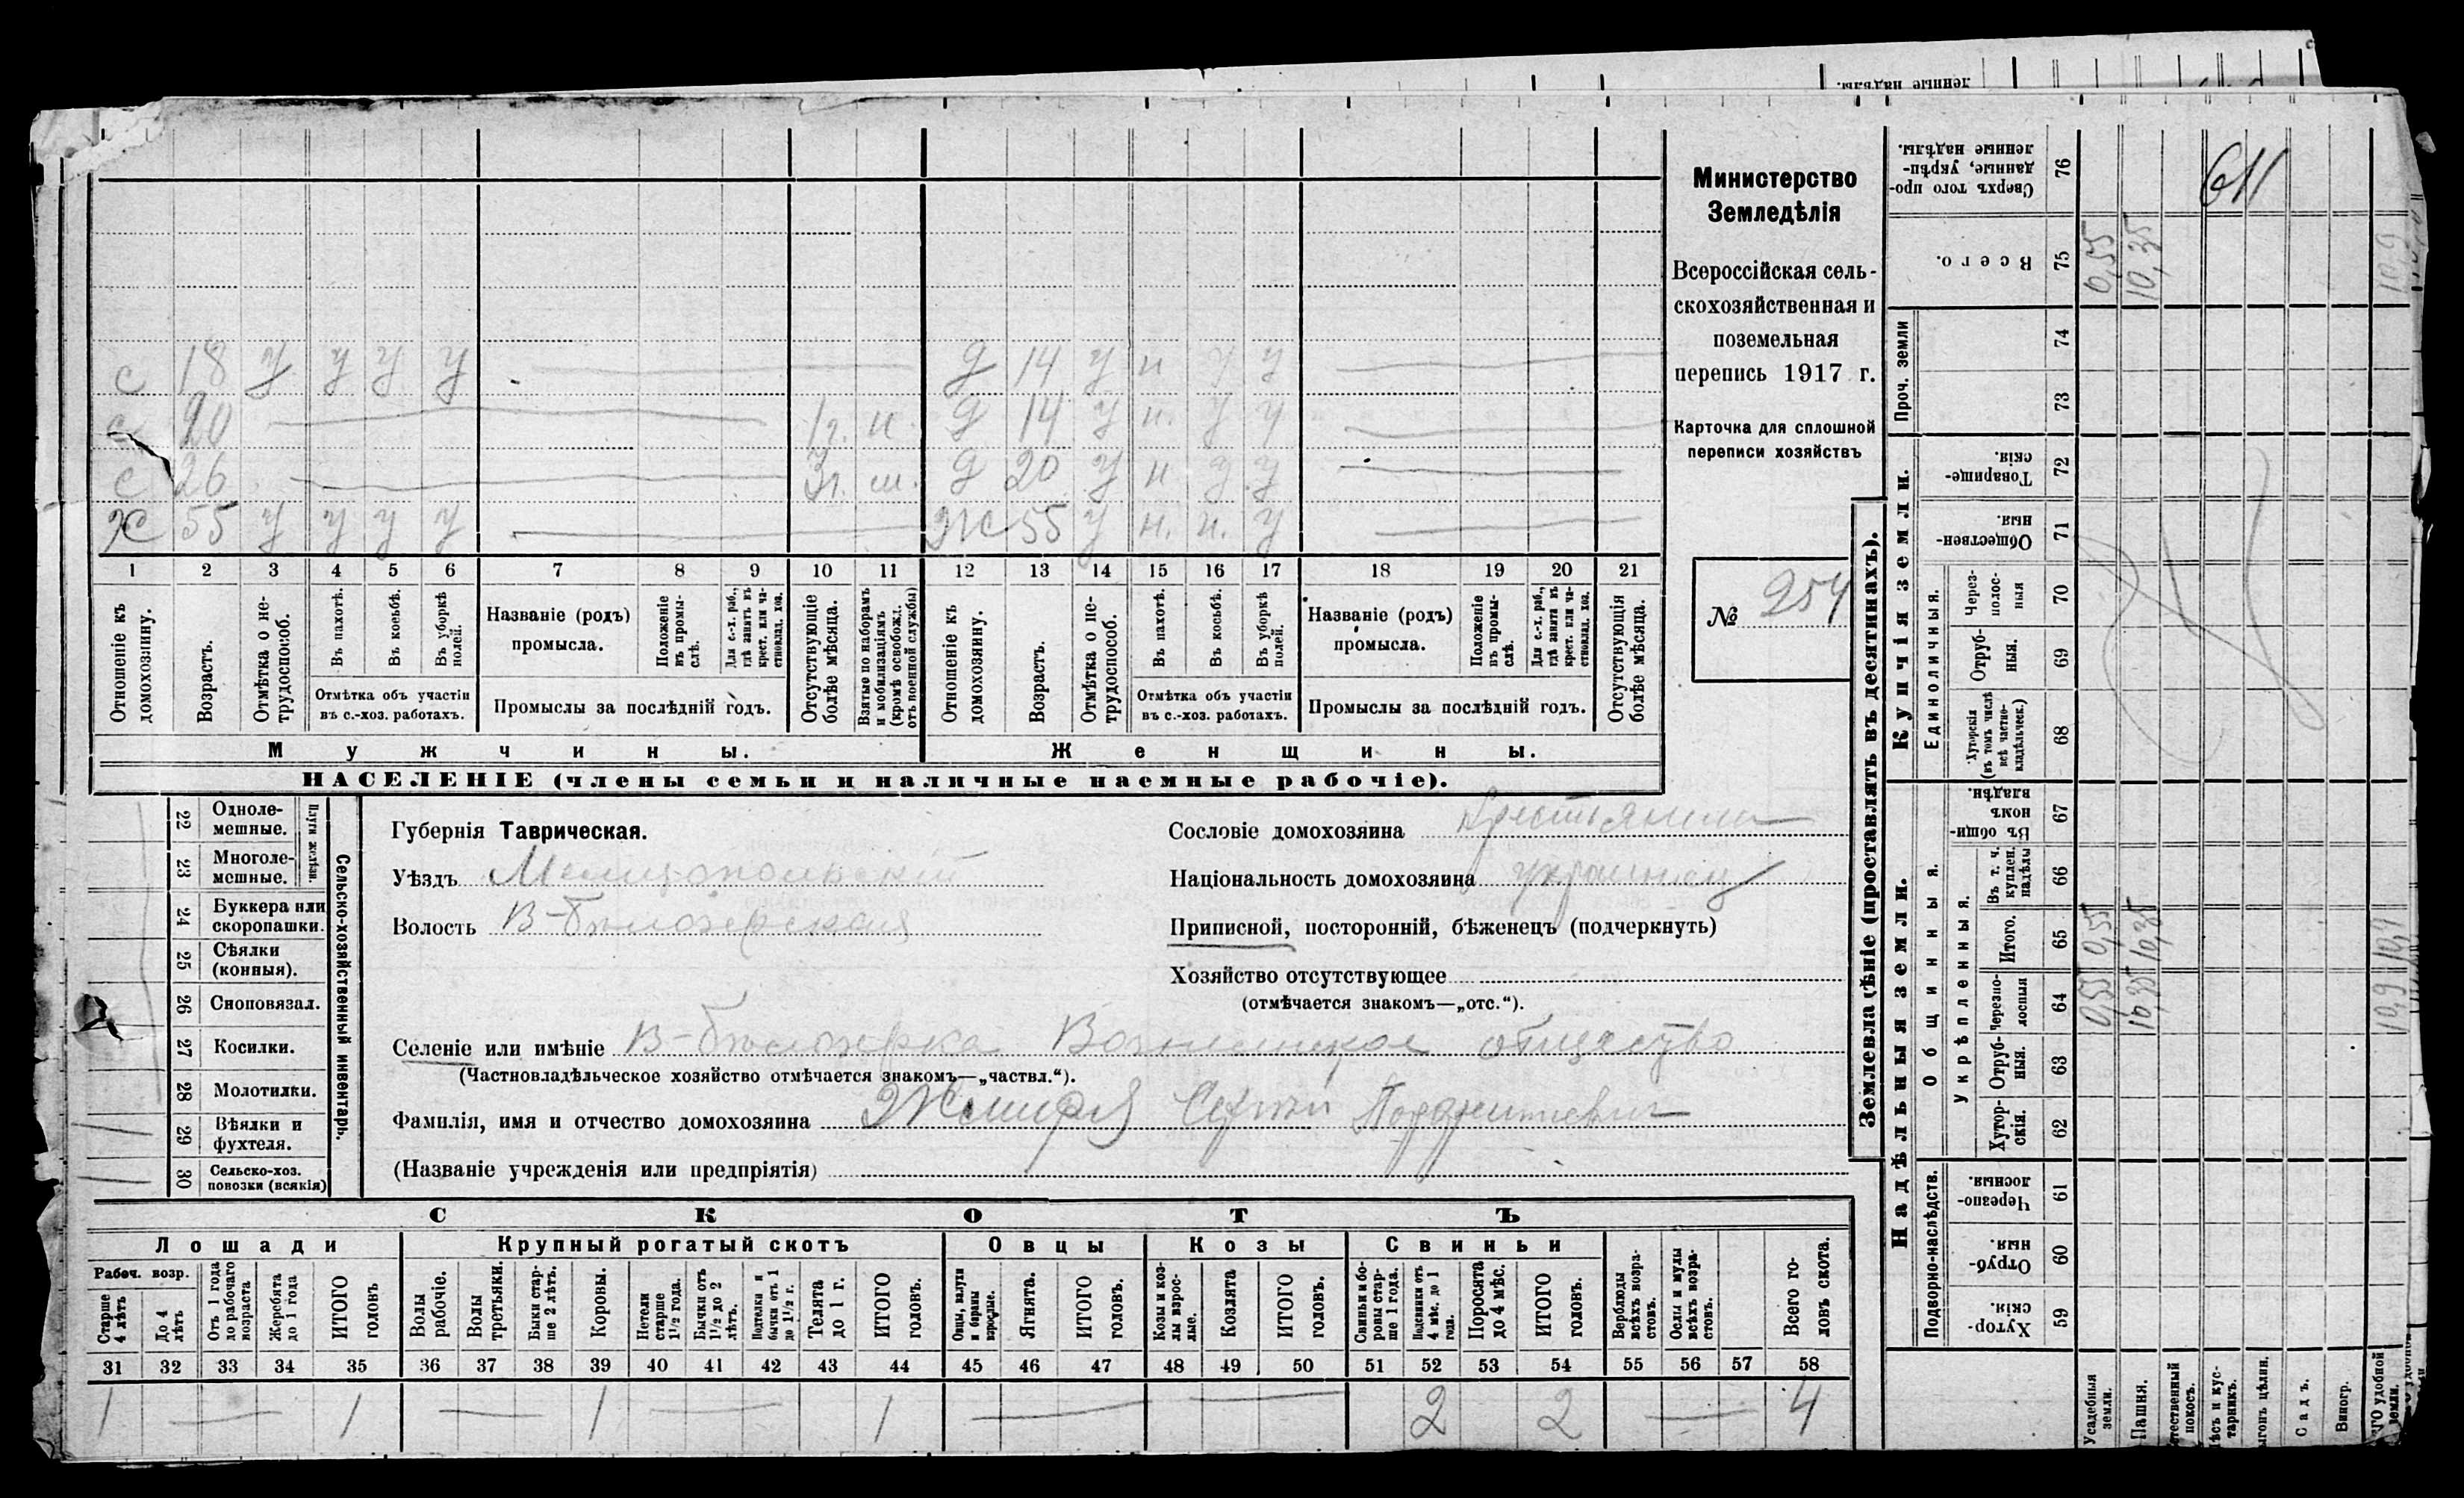 Министерство
Земледѣлія
Всероссійская сель-
скохозяйственная и
поземельная
перепись 1917 г.
Карточка для сплошной
переписи хозяйствъ
№ 254
611
с 18 у у у у д 14 у н у у
с 20 1г. н. д 14 у н. у у
с 26 3г. ш. д 20 у н у у
Ж 55 у у у у Ж 55 у н. н. у
1 2 3 4 5 6 7 8 9 10 11 12 13 14 15 16 17 18 19 20 21
Отношеніе къ домохозяину.
Возрастъ.
Отмѣтка о не-трудоспособ.
Въ пахотѣ.
Въ косьбѣ.
Въ уборкѣ полей.
Отмѣтка объ участіи
въ с.-хоз. работахъ.
Названіе (родъ)
промысла.
Положеніе въ промы-слѣ.
Для с.-х. раб., гдѣ занятъ въ крест. или ча-стновлад. хоз.
Промыслы за послѣдній годъ.
Отсутствующіе болѣе мѣсяца.
Взятые по наборамъ и мобилизаціямъ (кромѣ освобожд. отъ военной службы)
Отношеніе къ домохозяину.
Возрастъ.
Отмѣтка о не-трудоспособ.
Въ пахотѣ.
Въ косьбѣ.
Въ уборкѣ полей.
Отмѣтка объ участіи
въ с.-хоз. работахъ.
Названіе (родъ)
промысла.
Положеніе въ промы-слѣ.
Для с.-х. раб., гдѣ занятъ въ крест. или ча-стновлад. хоз.
Промыслы за послѣдній годъ.
Отсутствующія болѣе мѣсяца.
Мужчины. Женщины.
НАСЕЛЕНІЕ (члены семьи и наличные наемные рабочіе).
Сельско-хозяйственный инвентарь.
Плуги желѣзн.
22 Одноле-мешные.
23 Многоле-мешные.
24 Буккера или скоропашки.
25 Сѣялки (конныя).
26 Сноповязал.
27 Косилки.
28 Молотилки.
29 Вѣялки и фухтеля.
30 Сельско-хоз. повозки (всякія)
Губернія Таврическая.
Уѣздъ Мелитопольский
Волость В-Бѣлозерская
Сословіе домохозяина Крестьянин
Національность домохозяина украинец
Приписной, посторонній, бѣженецъ (подчеркнуть)
Хозяйство отсутствующее
(отмѣчается знакомъ—„отс.“).
Селеніе или имѣніе В-Бѣлозерка общество
(Частновладѣльческое хозяйство отмѣчается знакомъ—„частвл.“).
Фамилія, имя и отчество домохозяина Сергѣй
(Названіе учрежденія или предпріятія)
СКОТЪ
Лошади Крупный рогатый скотъ Овцы Козы Свиньи
Рабоч. возр.
Старше 4 лѣтъ
До 4 лѣтъ
Отъ 1 года до рабочаго возраста
Жеребята до 1 года
ИТОГО головъ
Волы рабочіе.
Волы третьяки.
Быки стар-ше 2 лѣтъ.
Коровы.
Нетели старше 1½ года.
Бычки отъ 1½ до 2 лѣтъ.
Подтелки и бычки отъ 1 до 1½ г.
Телята до 1 г.
ИТОГО головъ.
Овцы, валухи и бараны взрослые.
Ягнята.
ИТОГО головъ.
Козы и коз-лы взрос-лые.
Козлята
ИТОГО головъ.
Свиньи и бо-ровы стар-ше 1 года.
Подсвинки отъ 4 мѣс. до 1 года.
Поросята до 4 мѣс.
ИТОГО головъ.
Верблюды всѣхъ возра-стовъ.
Ослы и мулы всѣхъ возра-стовъ.
Всего го-ловъ скота.
31 32 33 34 35 36 37 38 39 40 41 42 43 44 45 46 47 48 49 50 51 52 53 54 55 56 57 58
1 1 1 1 2 2 4
Землевладѣніе (проставлять въ десятинахъ).
Надѣльныя земли.
Купчія земли.
Проч. земли
Подворно-наслѣдств.
Общинныя.
Укрѣпленныя.
Единоличныя.
76 Сверхъ того про-данные, укрѣп-ленные надѣлы.
75 Всего. 0,55 10,35 10,9
74
73
72 Товарище-скія.
71 Обществен-ныя.
70 Через-полос-ныя
69 Отруб-ныя.
68 Хуторскія (въ томъ числѣ всѣ частно-владѣльческ.)
67 Въ общин-номъ владѣн.
66 Въ т. ч. куплен. надѣлы
65 Итого. 0,55 10,35
64 Черезпо-лосныя 0,55 10,35 10,9
63 Отруб-ныя.
62 Хутор-скія.
61 Черезпо-лосныя.
60 Отруб-ныя.
59 Хутор-скія.
Усадебныя земли.
Пашня.
Садъ.
Виногр.